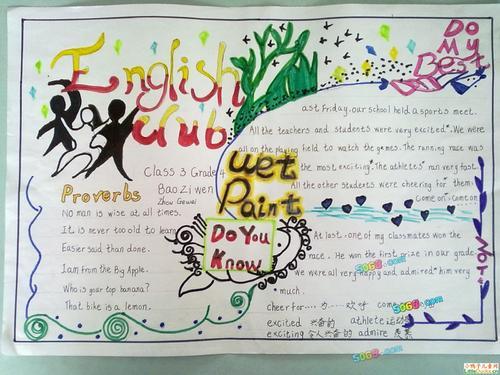 English
Club
Do
My
Best
Class 3 Grade 4
Bao Zi wen
Zhou Gewei
Proverbs
No man is wise at all times.
It is never too old to learn
Easier said than done.
I am from the Big Apple.
Who is your top banana?
That bike is a lemon.
Wet
Paint
Do You
Know
ast Friday, our school held a sports meet.
All the teachers and students were very excited. We were
all on the playing field to watch the games. The running race was
the most exciting. The athletes ran very fast.
All the other students were cheering for them.
Come on, come on
At last, one of my classmates won the
race. He won the first prize in our grade
we were all very happy and admired him very
much.
cheer for.... 为……欢呼 come
excited 兴奋的 athlete 运动
exciting 令人兴奋的 admire
5068.com
5068.com